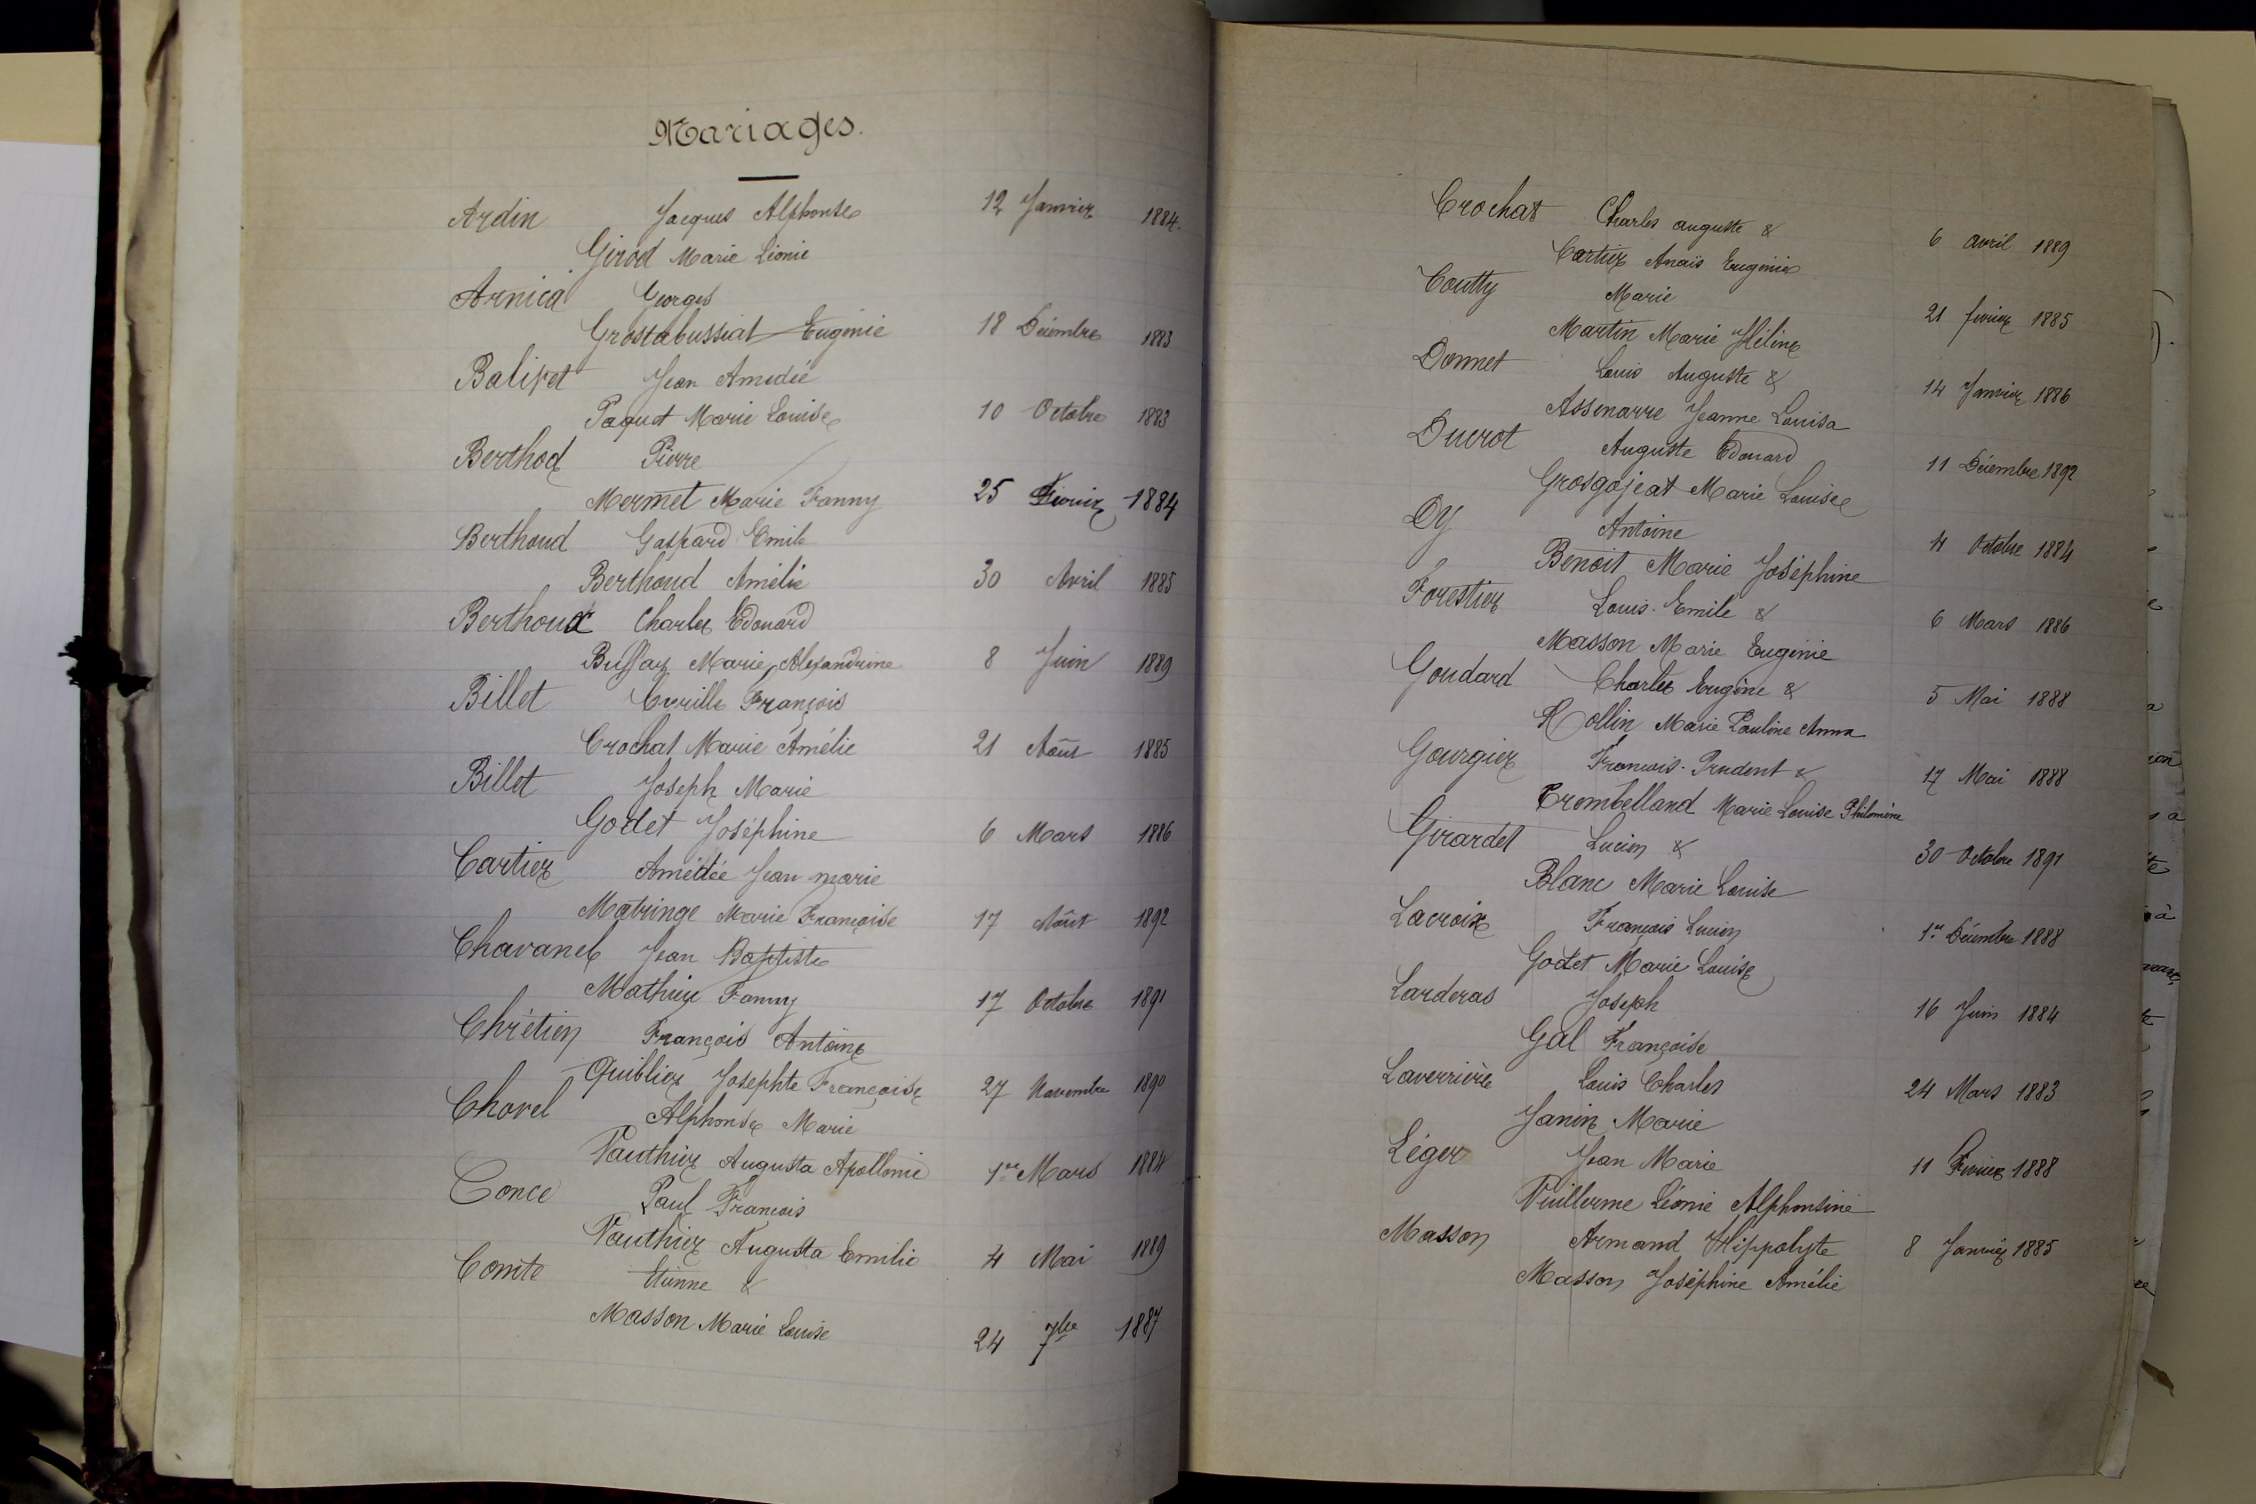 Mariages.
Ardin Jacques Alphonse 12 Janvier 1884.
Girod Marie Léonie
Arnica Georges
Grostabussiat Eugénie 18 Décembre 1883
Balivet Jean Amédée
Paquet Marie Louise 10 Octobre 1883
Berthod Pierre
Mermet Marie Fanny 25 Février 1884
Berthoud Gaspard Emile
Berthoud Amélie 30 Avril 1885
Berthoux Charles Edouard
Buffaz Marie Alexandrine 8 Juin 1889
Billet Cyrille François
Crochat Marie Amélie 21 Août 1885
Billet Joseph Marie
Godet Joséphine 6 Mars 1886
Cartier Amédée Jean marie
Matringe Marie Françoise 17 Août 1892
Chavanel Jean Baptiste
Mathieu Fanny 17 Octobre 1891
Chrétien François Antoine
Quiblier Josephte Françoise 27 Novembre 1890
Chovel Alphonse Marie
Vauthier Augusta Apollonie 1er Mars 1884
Conce Paul François
Vauthier Augusta Emilie 4 Mai 1889
Comte Etienne &
Masson Marie Louise 24 7bre 1887
Crochat Charles auguste &
Cartier Anaïs Eugénie 6 avril 1889
Coutty Marie
Martin Marie Hélène 21 février 1885
Donnet Louis Auguste &
Assenarre Jeanne Louisa 14 Janvier 1886
Ducrot Auguste Edouard
Grosgojeat Marie Louise 11 Décembre 1892
Dy Antoine
Benoit Marie Joséphine 4 Octobre 1884
Forestier Louis-Emile &
Masson Marie Eugénie 6 Mars 1886
Goudard Charles Eugène &
Rollin Marie Pauline Anna 5 Mai 1888
Gourgier François-Prudent &
Trombelland Marie Louise Philomène 17 Mai 1888
Girardet Lucien &
Blanc Marie Louise 30 Octobre 1891
Lacroix François Lucien
Godet Marie Louise 1er Décembre 1888
Larderas Joseph
Gal Françoise 16 Juin 1884
Laverrière Louis Charles
Janin Marie 24 Mars 1883
Léger Jean Marie
Vuillerme Léonie Alphonsine 11 Février 1888
Masson Armand Hippolyte 8 Janvier 1885
Masson Joséphine Amélie